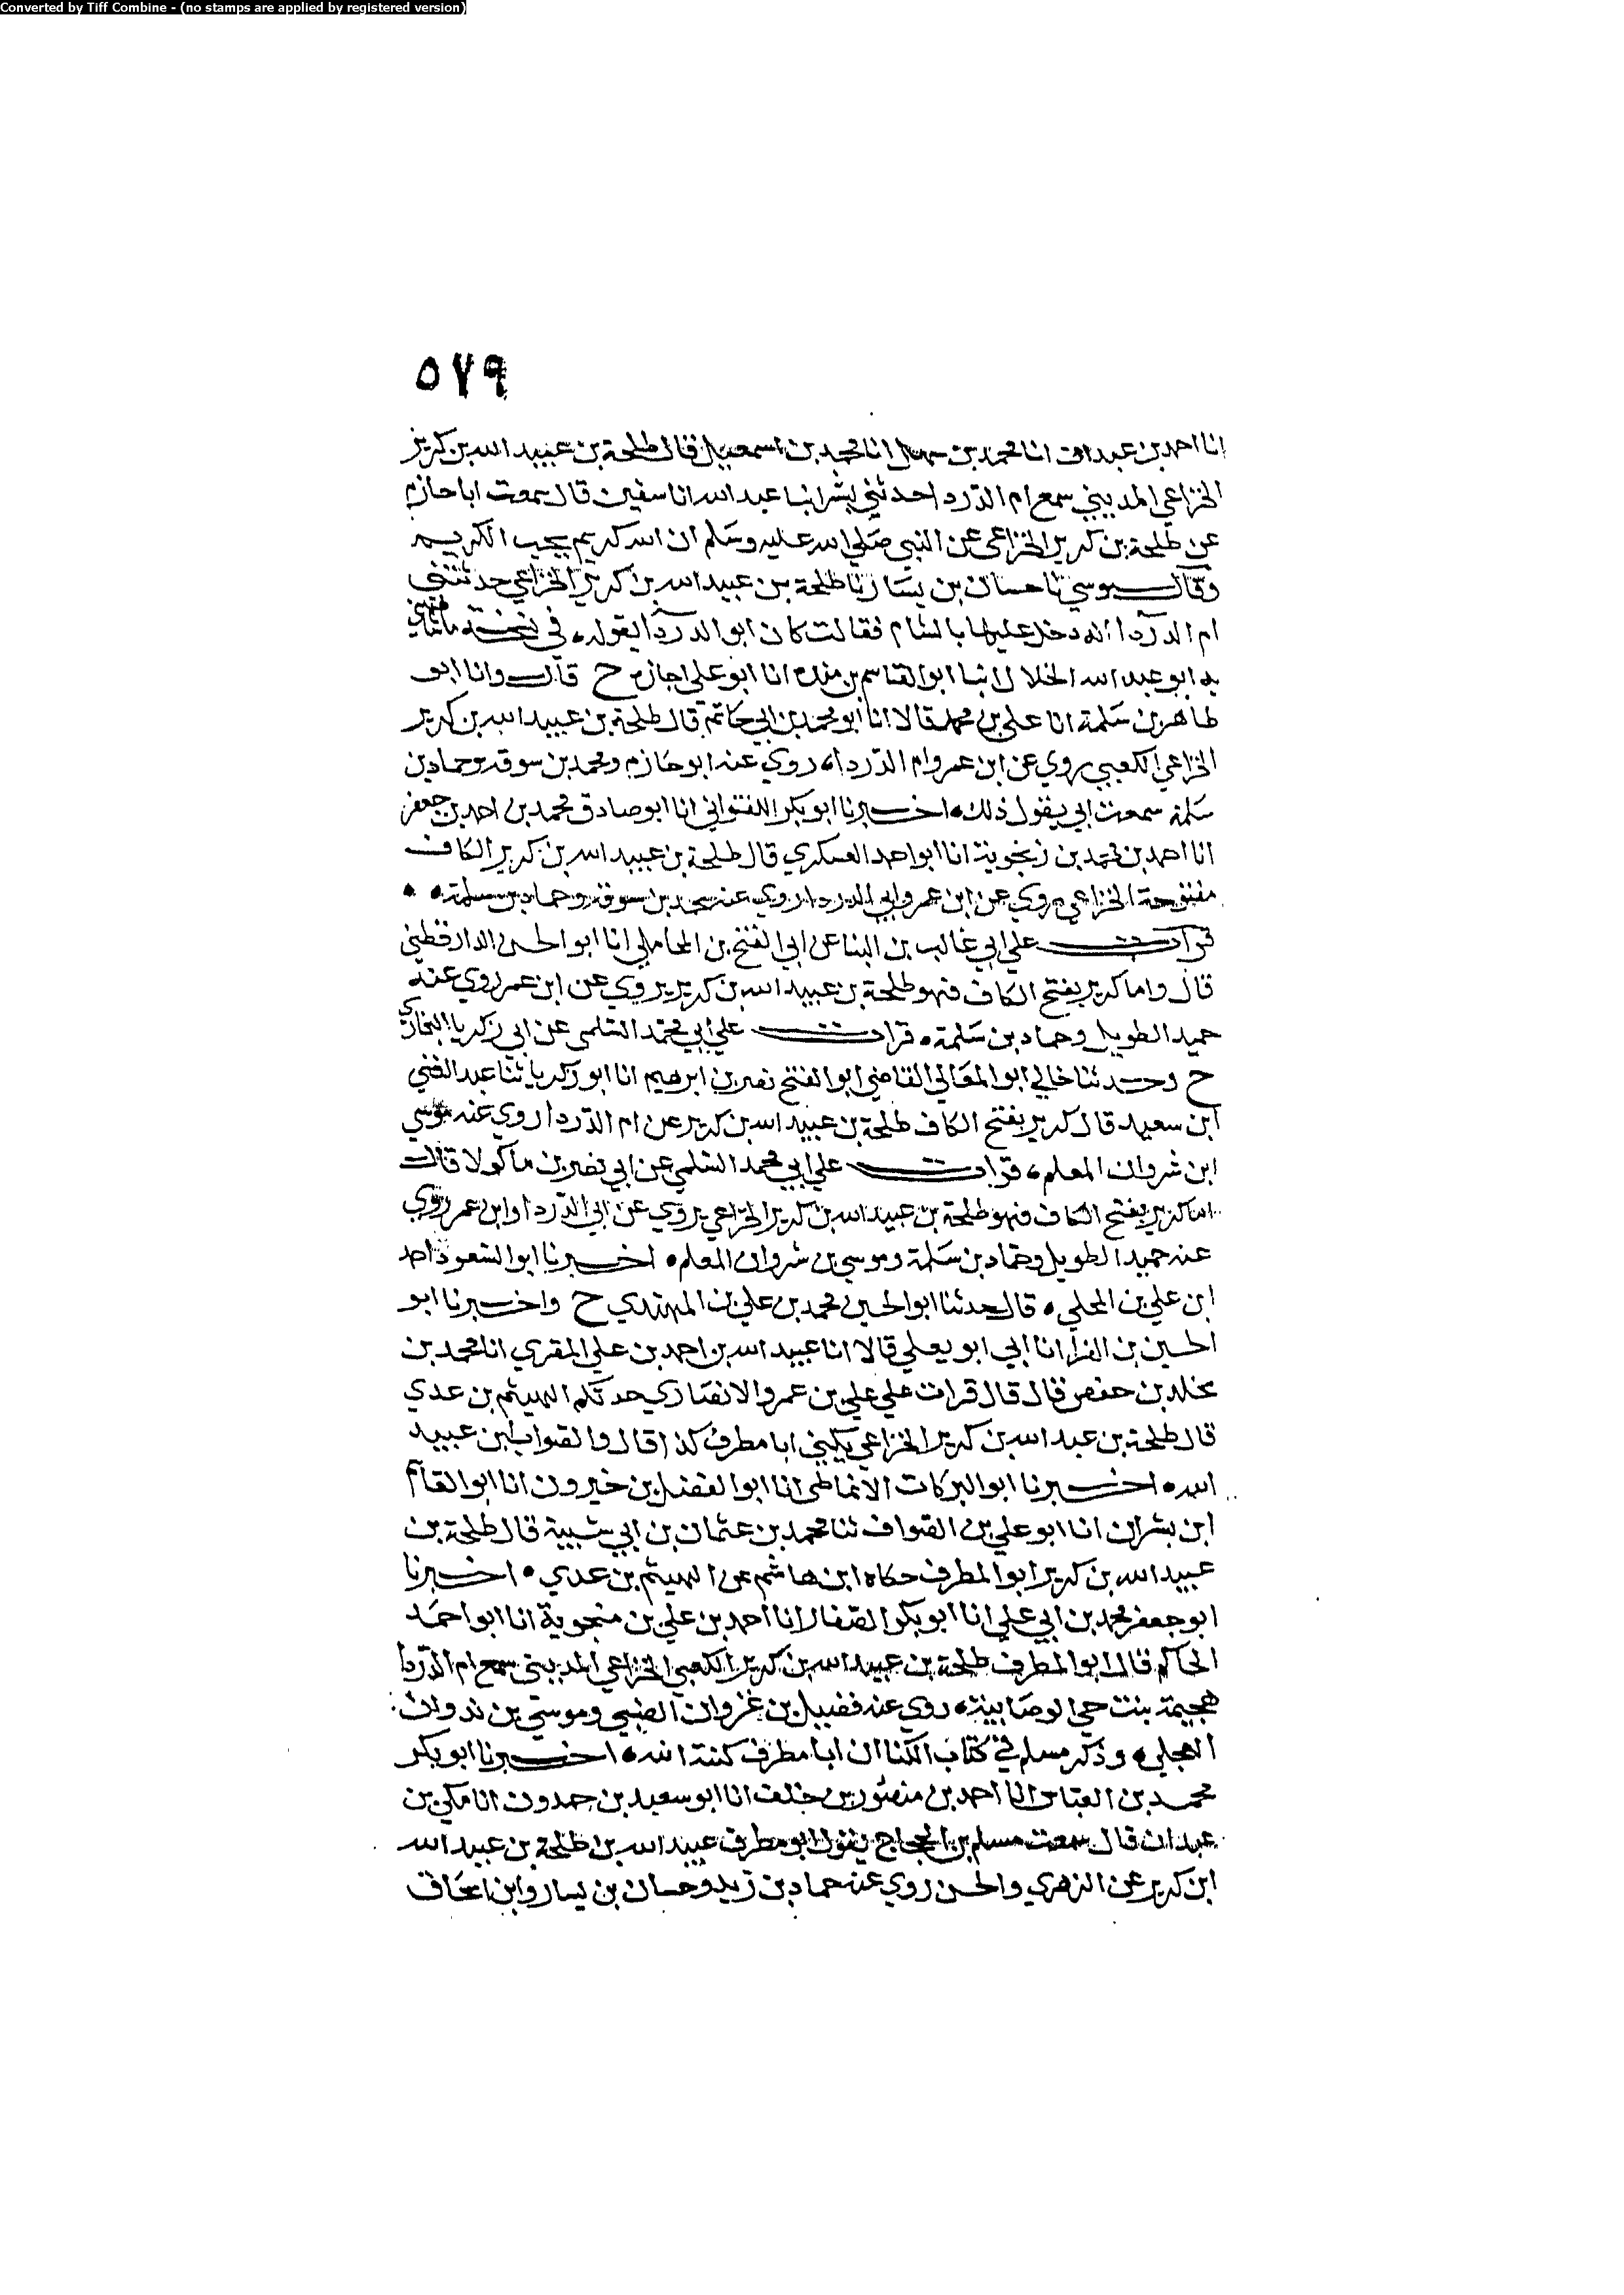 Converted by Tiff Combine - (no stamps are applied by registered version)
٥٧٩
انا احمد بن عبدان انا محمد بن سهل انا محمد بن اسمعيل قال طلحة بن عبيد الله بن كريز
الخزاعي المديني سمع ام الدرد احدثني بشر انبا عبد الله انا سفين قال سمعت ابا حازم
عن طلحة بن كريز الخزاعي عن النبي صلي الله عليه وسلم ان الله كريم يحب الكريم
وقال موسي نا حسان بن يسار نا طلحة بن عبيد الله بن كريز الخزاعي حدثتني
ام الدردا انه دخل عليها بالشام فقالت كان ابو الدردا يقوله في نسخة ما شافهني
به ابو عبد الله الخلال انبا ابو القاسم بن منده انا ابو علي اجازه ح قال وانا ابو
طاهر بن سلمة انا علي بن محمد قالا انا ابو محمد بن ابي حاتم قال طلحة بن عبيد الله بن كريز
الخزاعي الكعبي يروي عن ابن عمر وام الدرداء روي عنه ابو حازم ومحمد بن سوقه وحماد بن
سلمة سمعت ابي يقول ذلك اخبرنا ابو بكر اللفتواني انا ابو صادق محمد بن احمد بن جعفر
انا احمد بن محمد بن زنجوية انا ابو احمد العسكري قال طلحة بن عبيد الله بن كريز الكاف
مفتوحة الخزاعي يروي عن ابن عمر وابي الدردا روي عنه محمد بن سوقه وحماد بن سلمة
قرات علي ابي غالب بن البنا عن ابي الفتح بن المحاملي انا ابو الحسن الدارقطني
قال واما كريز بفتح الكاف فهو طلحة بن عبيد الله بن كريز يروي عن ابن عمر روي عنه
حميد الطويل وحماد بن سلمة قرات علي ابي محمد السلمي عن ابي زكريا البخاري
ح وحدثنا خالي ابو المعالي القاضي ابو الفتح نصر بن ابرهيم انا ابو زكريا ثنا عبد الغني
ابن سعيد قال كريز بفتح الكاف طلحة بن عبيد الله بن كريز عن ام الدردا روي عنه موسي
ابن شروان المعلم قرات علي ابي محمد السلمي عن ابي نصر بن ماكولا قال
اما كريز بفتح الكاف فهو طلحة بن عبيد الله بن كريز الخزاعي يروي عن ابي الدردا وابن عمر روي
عنه حميد الطويل وحماد بن سلمة وموسي بن شروان المعلم اخبرنا ابو السعود احمد
ابن علي بن المجلي قال حدثنا ابو الحسين محمد بن علي بن المهتدي ح واخبرنا ابو
الحسين بن الفرا انا ابي ابو يعلي قالا انا عبيد الله بن احمد بن علي المقري انا محمد بن
مخلد بن حفص قال قال قرات علي علي بن عمرو الانصاري حدثكم الهيثم بن عدي
قال طلحة بن عبد الله بن كريز الخزاعي يكني ابا مطرف كذا قال والصواب ابن عبيد
الله اخبرنا ابو البركات الانماطي انا ابو الفضل بن خيرون انا ابو القاسم
ابن بشران انا ابو علي بن الصواف ثنا محمد بن عثمان بن ابي شيبة قال طلحة بن
عبيد الله بن كريز ابو المطرف حكاه ابن هاشم عن الهيثم بن عدي اخبرنا
ابو جعفر محمد بن ابي علي انا ابو بكر الصفار انا احمد بن علي بن منجوية انا ابو احمد
الحاكم قال ابو المطرف طلحة بن عبيد الله بن كريز الكعبي الخزاعي المديني سمع ام الدردا
هجيمة بنت حي الوصابية روي عنه فضيل بن غزوان الضبي وموسي بن ثروان
العجلي وذكر مسلم في كتاب الكنا ان ابا مطرف كنة الله اخبرنا ابو بكر
محمد بن العباس انا احمد بن منصور بن خلف انا ابو سعيد بن حمدون انا مكي بن
عبدان قال سمعت مسلم بن الحجاج يقول ابو مطرف عبيد الله بن طلحة بن عبيد الله
ابن كريز عن الزهري والحسن روي عنه حماد بن زيد وحسان بن يسار وابن اسحاق